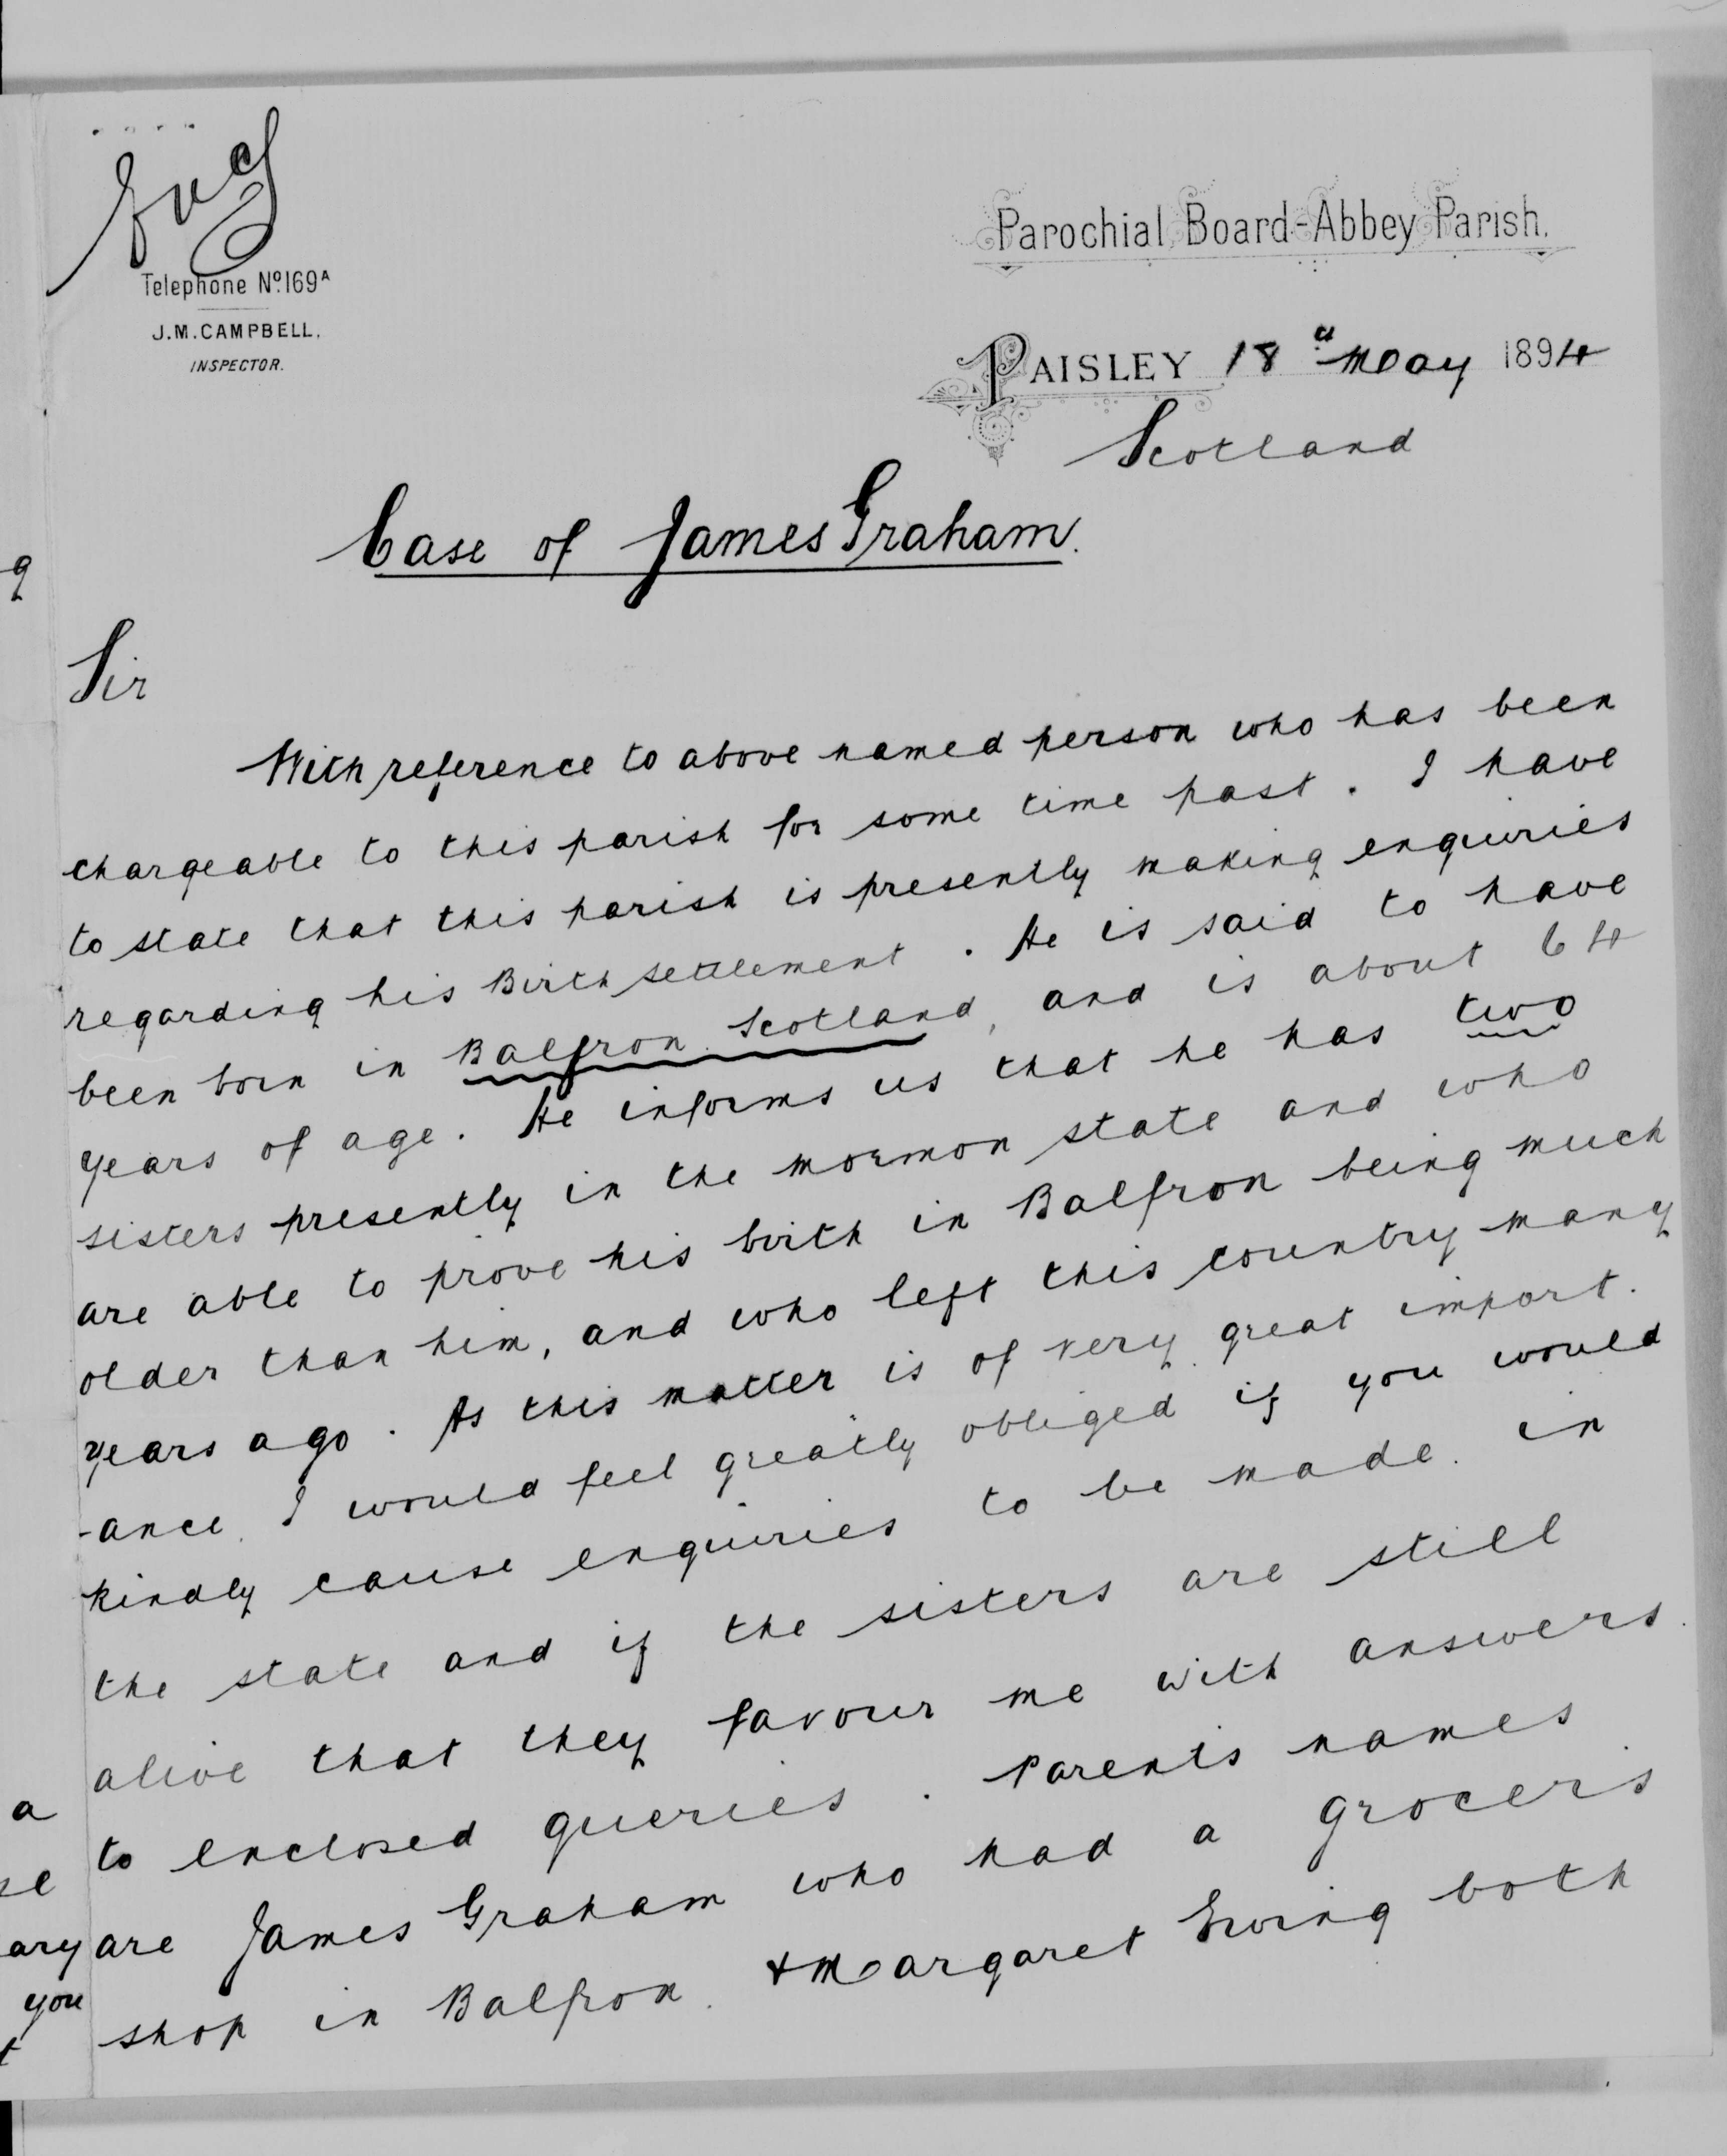 Telephone No. 169A
J. M. CAMPBELL.
INSPECTOR.
Parochial Board-Abbey Parish.
PAISLEY 18 May 1894
Scotland
Case of James Graham.
Sir
With reference to above named person who has been
chargeable to this parish for some time past. I have
to state that this parish is presently making enquiries
regarding his Birth settlement. He is said to have
been born in Balfron Scotland, and is about 64
years of age. He informs us that he has two
sisters presently in the mormon state and who
are able to prove his birth in Balfron being much
older than him, and who left this country many
years ago. As this matter is of very great import.
-ance. I would feel greatly obliged if you would
kindly cause enquiries to be made. in
the state and if the sisters are still
alive that they favour me with answers.
to enclosed queries. Parents names
are James Graham who had a grocers
shop in Balfron. + Margaret Ewing both
g
a
se
ary
you
t